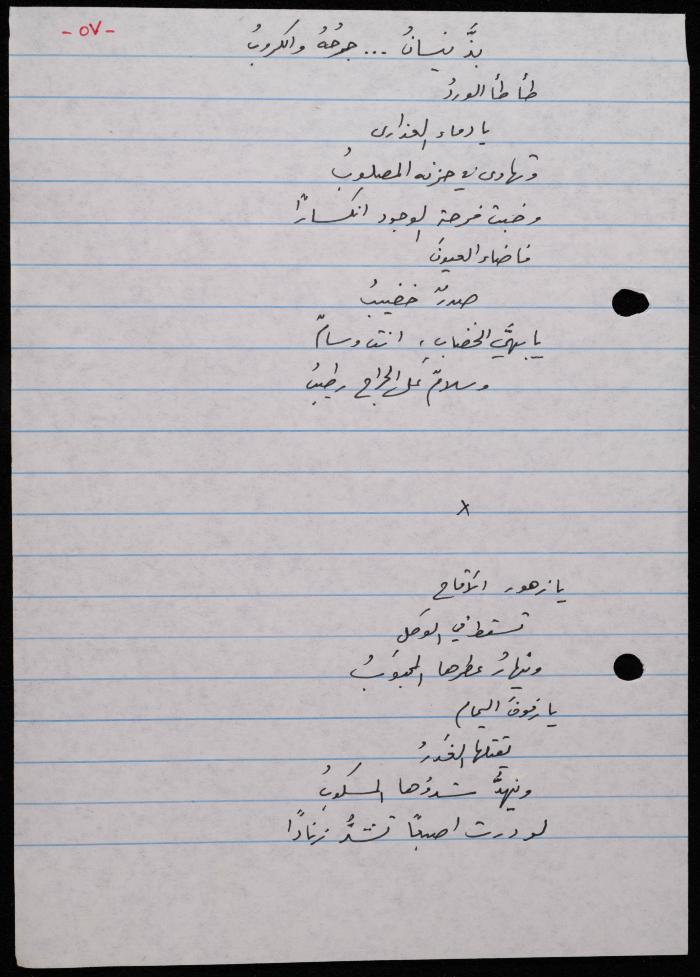 - ٥٧ -
بذَّ نيسانُ ... جرحُهُ والكروبُ
طأطأ الوردُ
يا دماء العذارى
وتهاوى في حزنه المصلوبُ
وخبت فرحة الوجود انكسارًا
فأضاء العيونَ
صدرٌ خضيبُ
يا بهيَّ الخضابِ، انت وسامٌ
وسلامٌ على الجراحِ رطيبُ
x
يا زهور الأقاح
تسقط في الوحل
وينهارُ عطرها المحبوبُ
يا زفوفَ اليمام
يقتلها الغدرُ
وينهدُّ شدوُها المسكوبُ
لو درت اصبعًا تشدُّ زنادًا